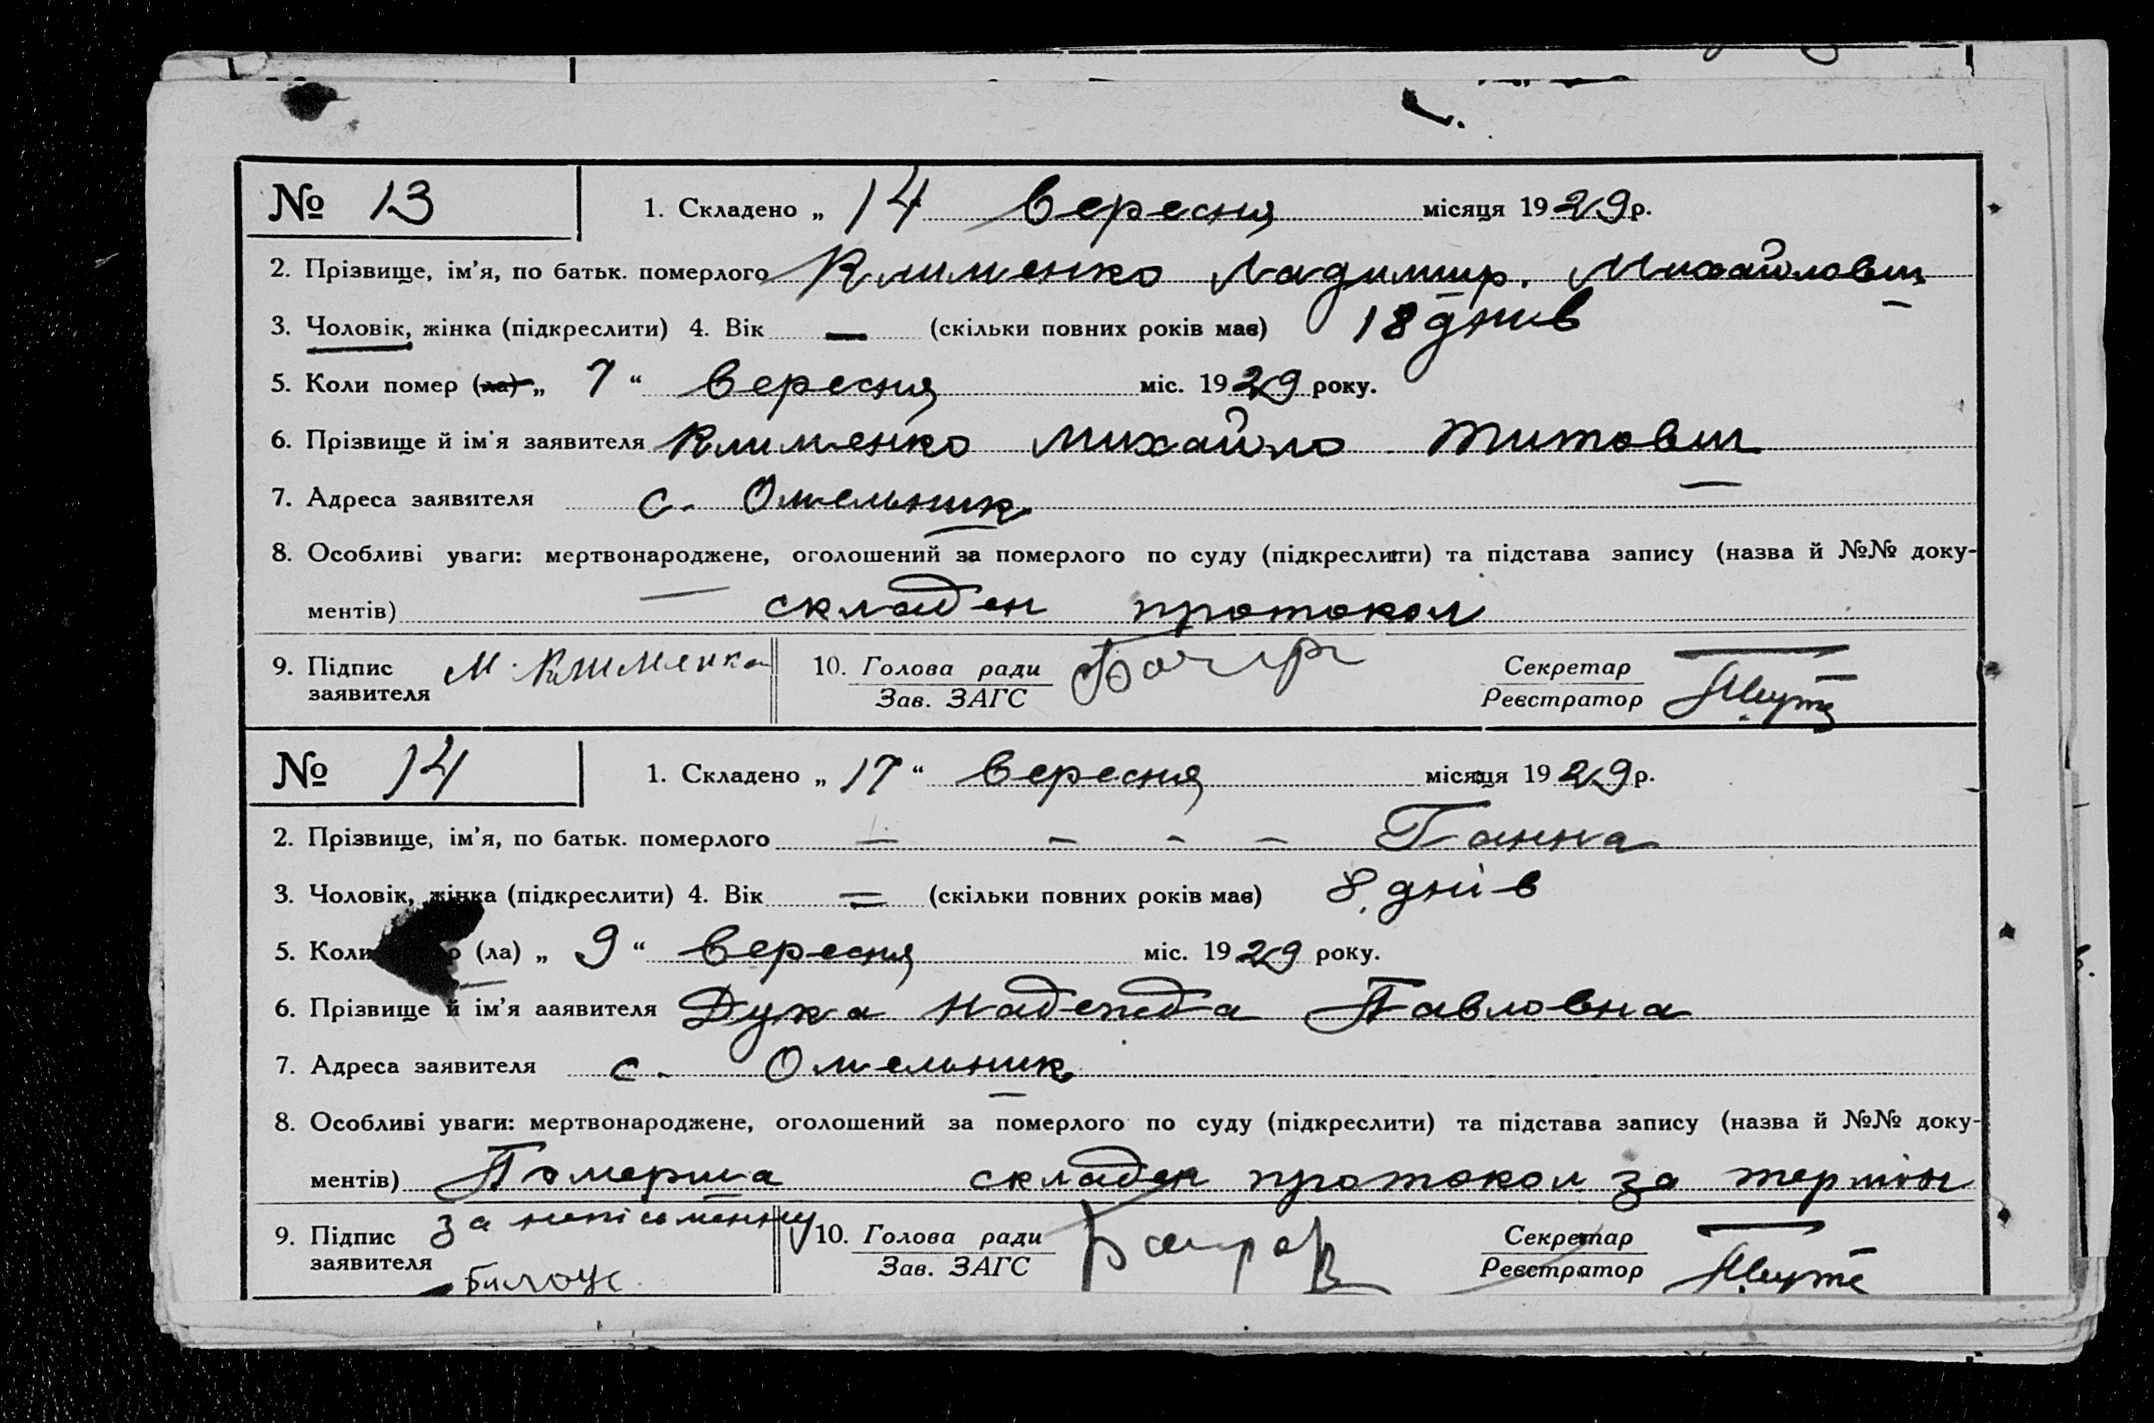 № 13 1. Складено „ 14 вересня місяця 1929 р.
2. Прізвище, ім'я, по батьк. померлого Клименко Ладимир. Михайлович
3. Чоловік, жінка (підкреслити) 4. Вік — (скільки повних років має) 18 днів
5. Коли помер (ла) „ 7 “ вересня міс. 1929 року.
6. Прізвище й ім'я заявителя Клименко Михайло Титович
7. Адреса заявителя с. Омельник
8. Особливі уваги: мертвонароджене, оголошений за померлого по суду (підкреслити) та підстава запису (назва й №№ доку-
ментів) — складен протокол
9. Підпис заявителя М. Клименко 10. Голова ради Секретар
Зав. ЗАГС Реєстратор
№ 14 1. Складено „ 17 “ вересня місяця 1929 р.
2. Прізвище, ім'я, по батьк. померлого — — - — Ганна
3. Чоловік, жінка (підкреслити) 4. Вік = (скільки повних років має) 8 днів
5. Коли (ла) „ 9 “ вересня міс. 1929 року.
6. Прізвище й ім'я ааявителя Дука Надежда Павловна
7. Адреса заявителя с. Омельник
8. Особливі уваги: мертвонароджене, оголошений за померлого по суду (підкреслити) та підстава запису (назва й №№ доку-
ментів) Померша складен протокол за термін
9. Підпис заявителя за неписьменну Билоус 10. Голова ради Секретар
Зав. ЗАГС Реєстратор